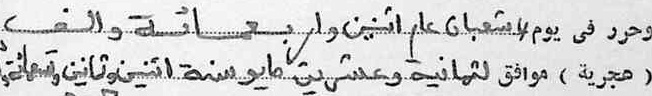 وحرر فى يوم 4 شعبان عام اثنين واربعمائة والف
( هجرية ) موافق لثمانية وعشرين مايو سنة اثنين وثمانين وتسعمائة